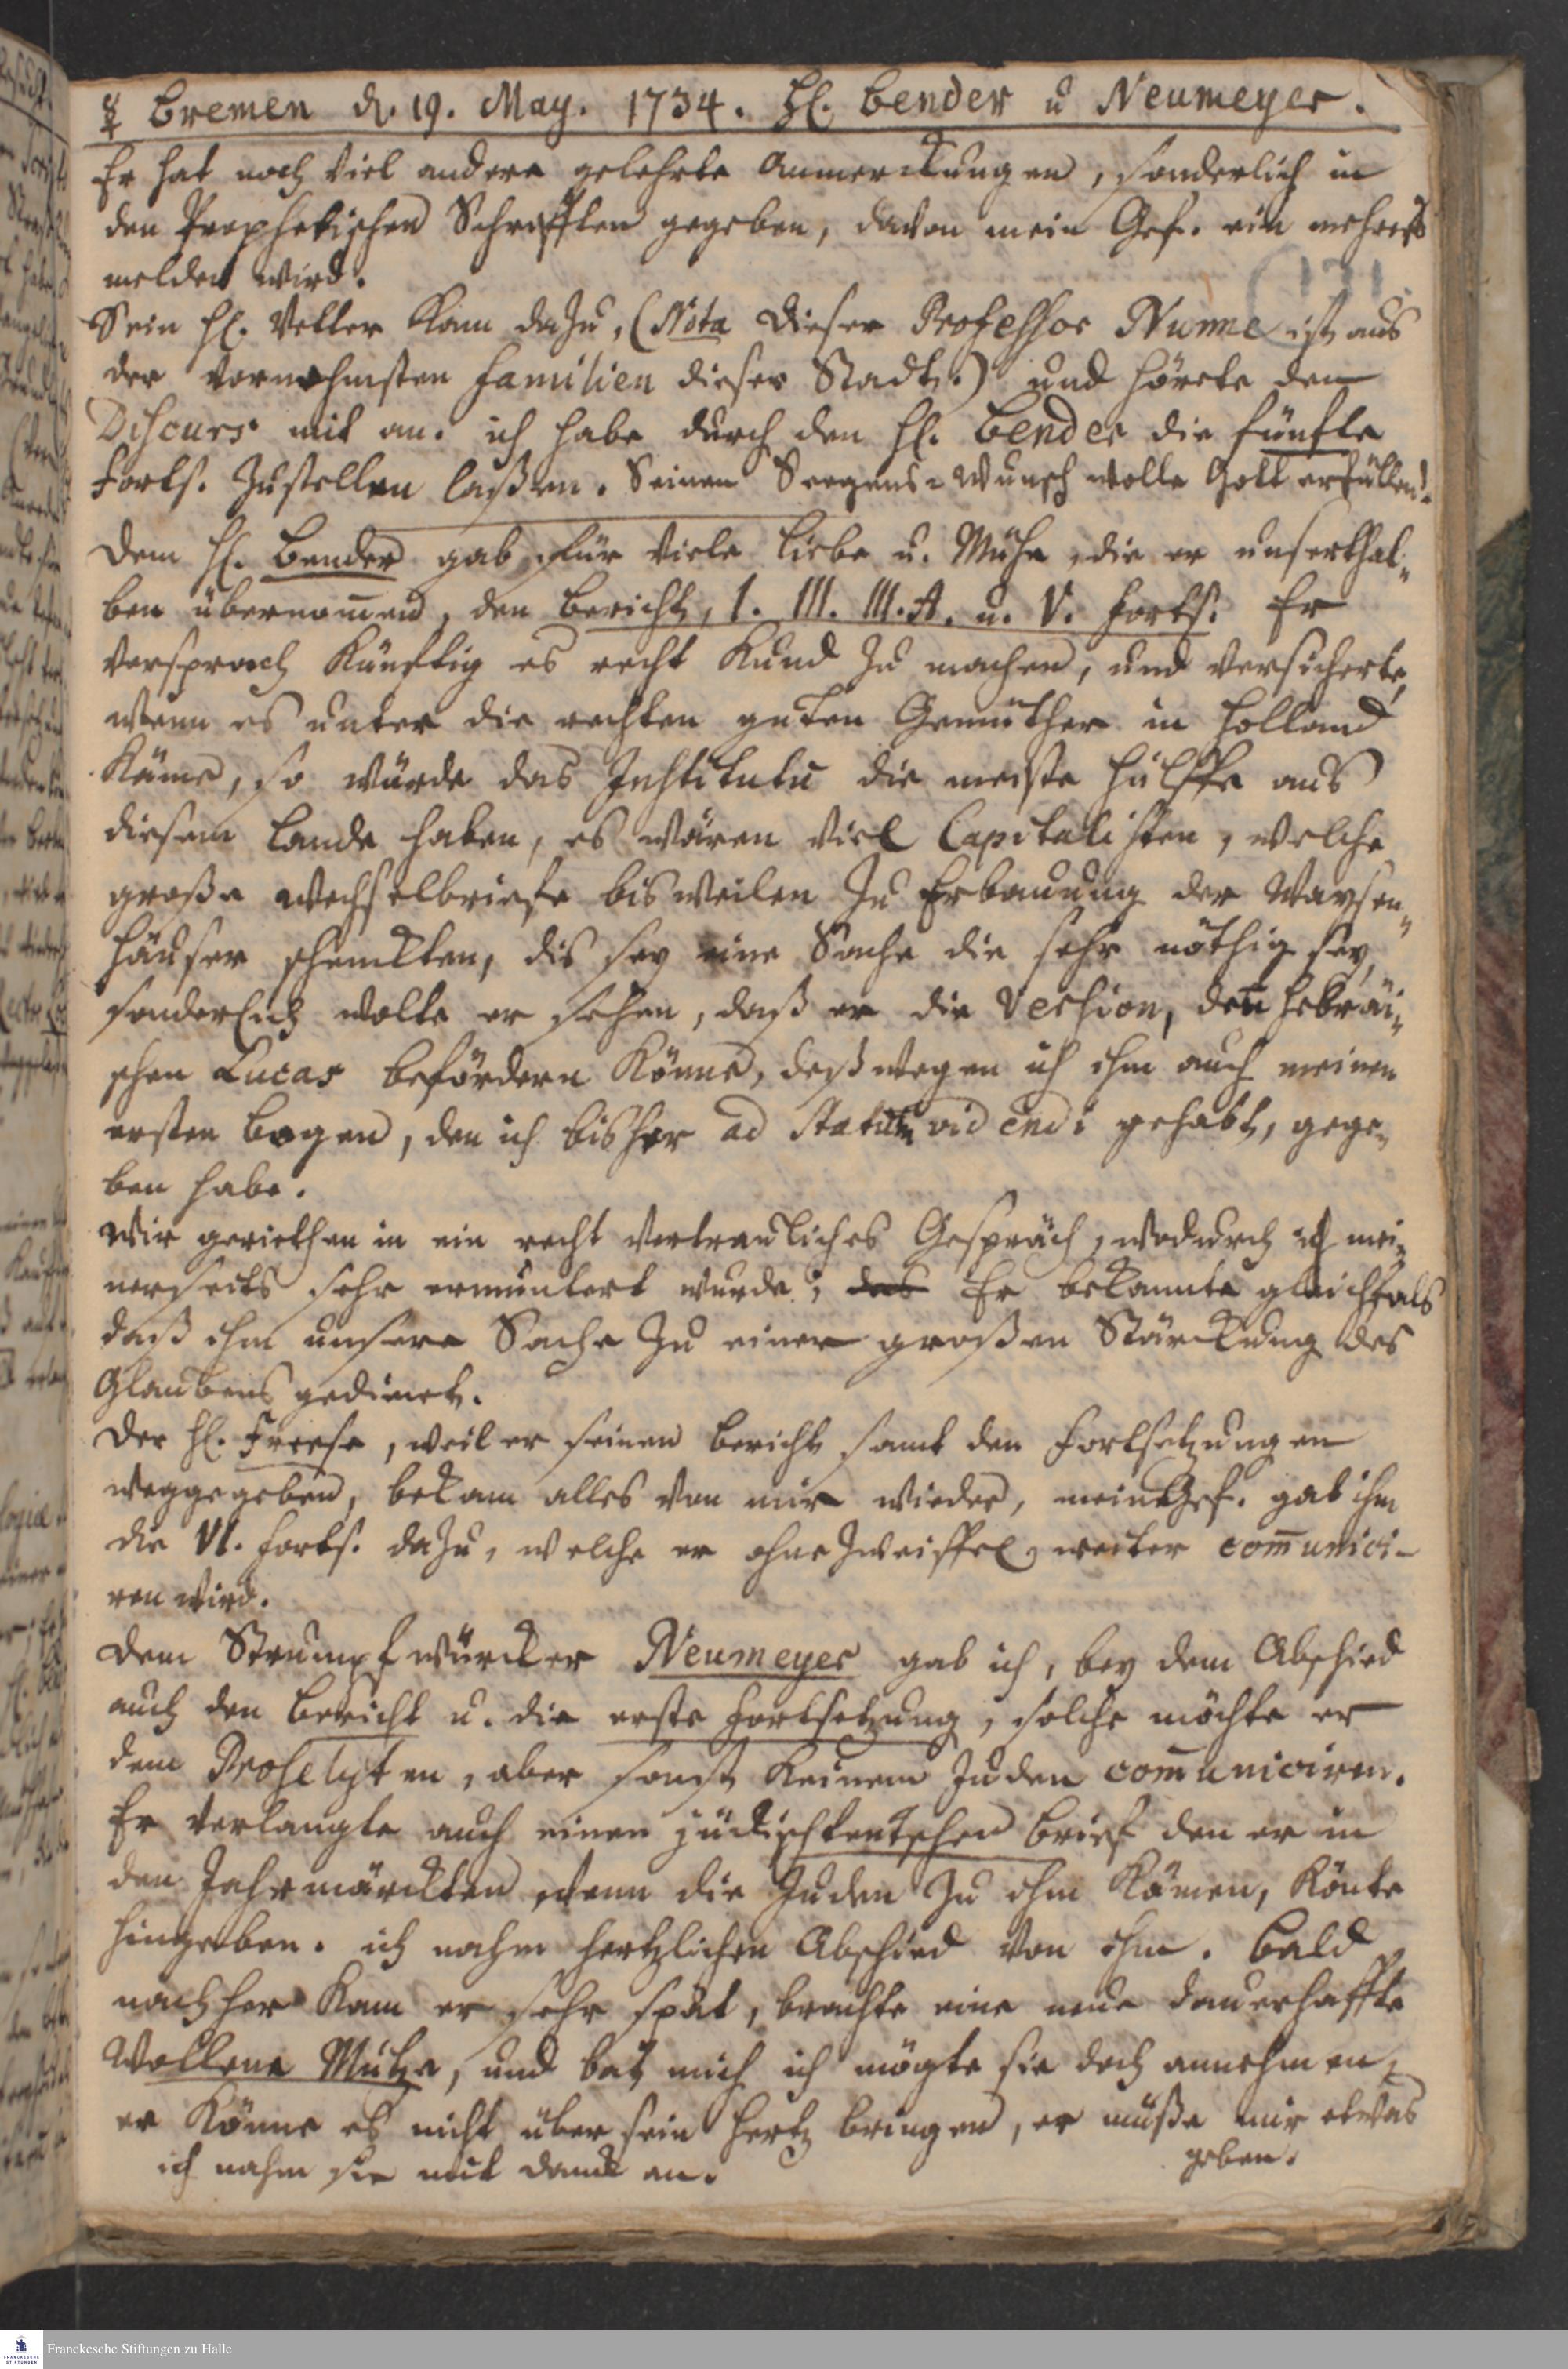 ☿ Bremen d. 19. May. 1734. H. Bender u Neumeyer.
Er hat noch viel andere gelehrte Anmerckungen, sonderlich in
den Prophetischen Schrifften gegeben, davon mein Gef. ein mehrers
melden wird.
Sein H. Vetter kam dazu, (Nota dieser Professor Nunne ist aus
der vornehmsten Familien dieser Stadt.) und hörete den
Discurs mit an. ich habe durch den H. Bender die fünfte
Forts. zustellen laßen. Seinen Seegens-Wunsch wolle Gott erfüllen.
Dem H. Bender gab für viele Liebe u. Mühe, die er unserthal-
ben übernom̅en, den Bericht, I. III. III.A. u. V. Forts. Er
versprach künftig es recht kund zu machen, und versicherte,
wenn es unter die rechten guten Gemüther in Holland
käme, so würde das Institutū die meiste Hülffe aus
diesem Lande haben, es wären viel Capitalisten, welche
große Wechselbriefe bisweilen zu Erbauung der Waysen-
häuser schenckten, dis sey eine Sache die sehr nöthig sey,
sonderlich wolte er sehen, daß er die Version, den hebräi-
schen Lucas befördern könne, deßwegen ich ihm auch meinen
ersten Bogen, den ich bisher ad statum videndi gehabt, gege-
ben habe.
Wir geriethen in ein recht vertrauliches Gespräch, wodurch ich mei-
nerseits sehr ermuntert wurde; das Er bekannte gleichfals
daß ihm unsere Sache zu einer großen Stärckung des
Glaubens gedienet.
Der H. Freese, weil er seinen Bericht samt den Fortsetzungen
weggegeben, bekam alles von mir wieder, mein Gef. gab ihm
die VI. Forts. dazu, welche er ohne Zweiffel weiter com̅unici-
ren wird.
Dem Strumpfwürcker Neumeyer gab ich, bey dem Abschied
auch den Bericht u. die erste Fortsetzung, solche möchte er
dem Proselyten, aber sonst keinem Juden com̅uniciren.
Er verlangte auch einen jüdischteutschen Brief den er in
den Jahrmärckten, wenn die Juden zu ihm kämen, könte
hingeben. ich nahm hertzlichen Abschied von ihm. Bald
nachher kam er sehr spät, brachte eine neue dauerhaffte
Wollene Mütze, und bat mich ich mögte sie doch annehmen,
er könne es nicht über sein Hertz bringen, er müße mir etwas
geben.
ich nahm sie mit Danck an.
Franckesche Stiftungen zu Halle